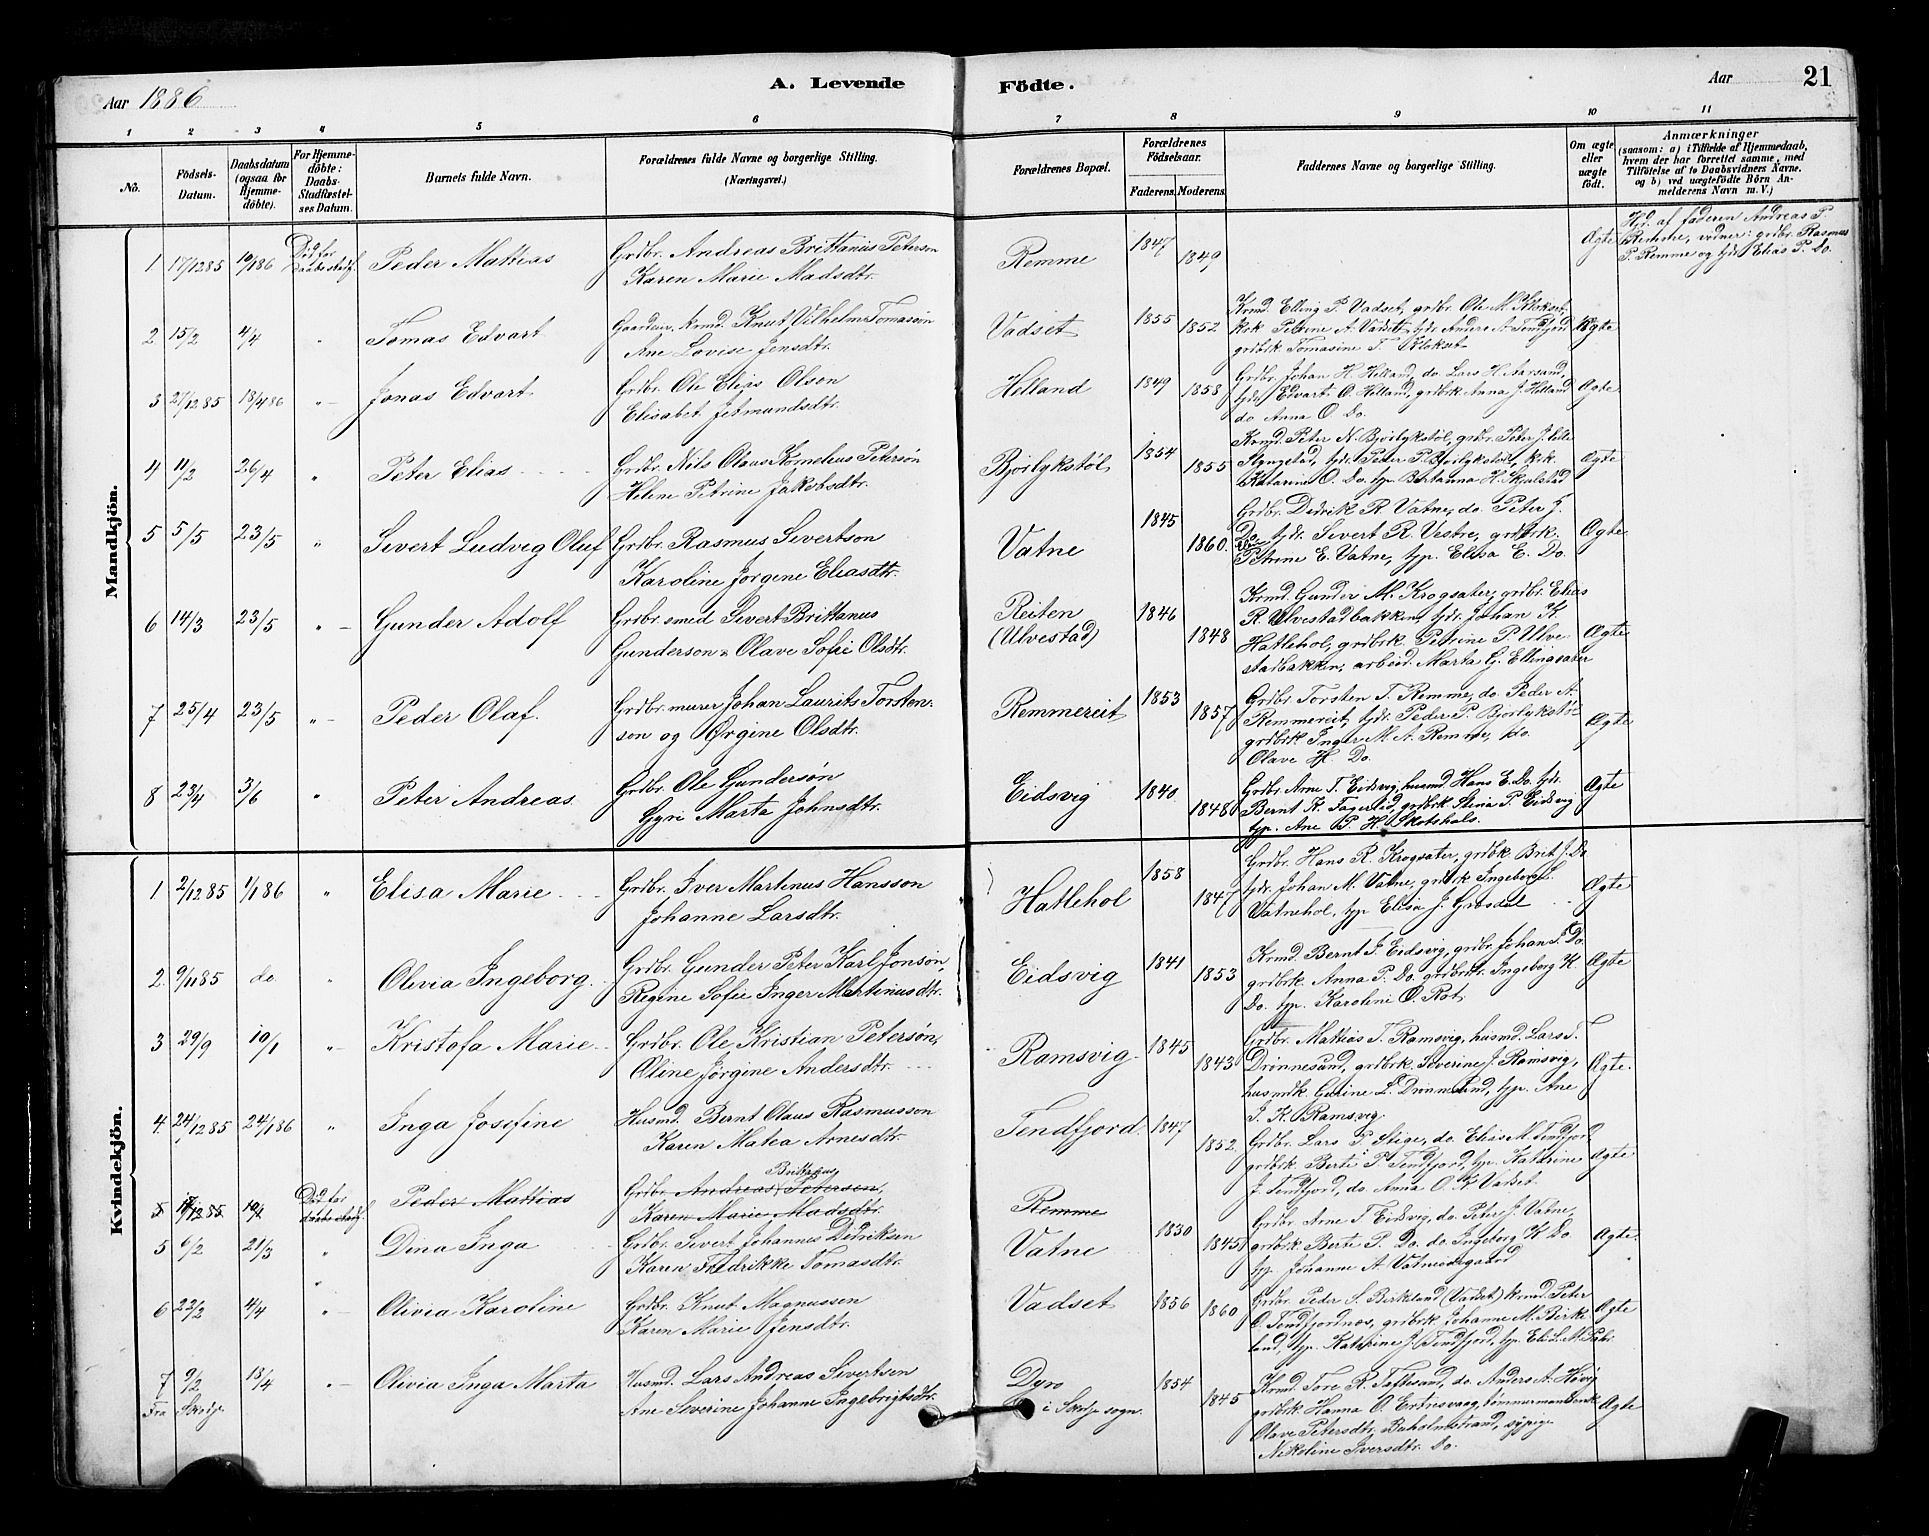 Aar 1886
A. Levende
Födte.
Aar
21
1 2 3 4 5 6 7 8 9 10 11
No.
Födsels-
Datum.
Daabsdatum
(ogsaa för
Hjemme-
döbte).
For Hjemme-
döbte:
Daabs-
Stadfæstel-
ses Datum.
Barnets fulde Navn.
Forældrenes fulde Navne og borgerlige Stilling.
(Næringsvei.)
Forældrenes Bopæl.
Forældrenes
Födselsaar.
Faderens. Moderens.
Faddernes Navne og borgerlige Stilling.
Om ægte
eller
uægte
födt.
Anmærkninger
(saasom: a) i Tilfælde af Hjemmedaab,
hvem der har forrettet samme, med
Tilföielse af to Daabsvidners Navne.
og b) ved uægtefödte Börn An-
melderens Navn m. V.)
Mandkjön.
1 17/12 85 10/1 86 Död før Daabs stadf. Peder Mattias
Grdbr. Andreas Brittanus Peterson
Karen Marie Madsdtr.
Remme 1847 1849
Ægte
Hd. af faderen Andreas P.
Remme, vidner: grdbr. Rasmus
P. Remme og tjdr. Elias P. Do.
2 15/2 4/4 " Tomas Edvart
Gaardeier, krmd. Knut Vilhelm Tomassøn
Ane Lovise Jensdtr.
Vadset 1855 1852
Krmd. Elling P. Vadset, grdbr. Ole M. Klokset,
krk. Petrine A. Vadset, tjdr. Anders A. Tendfjord
grdbrk. Tomasine T. Klokset
Ægte
3 27/12 85 18/4 86 " Jonas Edvart
Grdbr. Ole Elias Olson
Elisabet Jetmundsdtr.
Helland 1849 1858
Grdbr. Johan H. Helland, do. Lars H. Aarsund,
tjdr. Edvart O. Helland, grdbrk. Anna J. Helland
do. Anna O. Do.
Ægte
4 11/2 26/4 " Peter Elias
Grdbr. Nils Olaus Kornelius Petersøn
Helene Petrine Jakobsdtr.
Bjørlykstøl 1854 1855
Krmd. Peter N. Bjørlykstøl, grdbr. Peter J. lille
Slyngstad, tjdr. Peter P. Bjørlykstøl, krk.
Katarina O. Do. tjp. Bertanna H. Skjelstad
Ægte
5 5/5 23/5 " Sivert Ludvig Oluf
Grdbr. Rasmus Sivertson
Karoline Jørgine Eliasdtr.
Vatne 1845 1860.
Grdbr. Didrik R. Vatne, do. Peter J.
Do. tjdr. Sivert R. Vestre, grdbrk.
Petrine E. Vatne, tjp. Elisa E. Do.
Ægte
6 14/3 23/5 " Gunder Adolf
Grdbr. smed Sivert Brittanus
Gunderson & Olave Sofie Olsdtr.
Reiten
(Ulvestad)
1846 1848
Krmd. Gunder M. Krogsæter, grdbr. Elias
R. Ulvestadbakken, tjdr. Johan K.
Hatlehol, grdbrk. Petrine P. Ulve
stadbakken, arbeid. Marta G. Ellingsæter
Ægte
7 25/4 23/5 " Peder Olaf.
Grdbr. murer Johan Laurits Torsten-
son og Ørgine Olsdtr.
Remmereit 1853 1857
Grdbr. Torsten T. Remme, do. Peder A.
Remmereit, tjdr. Peder P. Bjørlykstøl
grdbrk. Inger M. A. Remme, do.
Olave H. Do.
Ægte
8 23/4 3/6 " Peter Andreas
Grdbr. Ole Gundersøn
Gyri Marta Johnsdtr.
Eidsvig 1840 1848
Grdbr. Arne T. Eidsvig, husmd. Hans E. Do. tjdr.
Bernt K. Fagerlid, grdbrk. Stina P. Eidsvig
tjp. Ane P. H. Skotshals.
Ægte
Kvindekjön.
1 2/12 85 1/1 86 " Elisa Marie
Grdbr. Iver Martinus Hansson
Johanne Larsdtr.
Hatlehol 1858 1847
Grdbr. Hans R. Krogsæter, grdbrk. Brit J. Do
tjdr. Johan M. Vatne, grdbrk. Ingeborg L.
Vatnehol, tjp. Elisa J. Grøsdal
Ægte
2. 9/11 85 do. " Olivia Ingeborg.
Grdbr. Gunder Peter Karl Jonsøn,
Regine Sofie Inger Martinusdtr.
Eidsvig 1841 1853
Krmd. Bernt J. Eidsvig, grdbr. Johan I. Do.
grdbrk. Anna P. Do. grdbrdtr. Ingeborg K.
Do. tjp. Karoline O. Rot
Ægte
3 29/9 10/1 " Kristofa Marie
Grdbr. Ole Kristian Petersøn,
Oline Jørgine Andersdtr.
Ramsvig 1845 1843
Grdbr. Mattias T. Ramsvig, husmd. Lars T.
Drønnesund, grdbrk. Severine J. Ramsvig,
husmdk. Gurine L. Drønnesund, tjp. Ane
J. K. Ramsvig.
Ægte.
4. 24/12 85 24/1 86 " Inga Josefine
Husmd. Bernt Olaus Rasmusson
Karen Matea Arnesdtr.
Tendfjord. 1847 1852.
Grdbr. Lars P. Stige, do. Elias M. Tendfjord
grdbrk. Berte P. Tendfjord, tjp. Katrine
J. Tendfjord, do. Anna O. K. Vadset.
Ægte
5 17/12 85 10/1 Död før daabs stadf. Peder Mattias
Grdbr. Andreas Brittanus Petersen,
Karen Marie Madsdtr.
Remme
5 6/2 21/3 " Dina Inga
Grdbr. Sivert Johannes Didriksen
Karen Fredrikke Tomasdtr.
Vatne 1830 1845
Grdbr. Arne T. Eidsvig, do. Peter J. Vatne,
grdbrk. Berte P. Do. do. Ingeborg K. Do.
tjp. Johanne A. Vatneødegaard
Ægte.
6 22/2 4/4 " Olivia Karoline
Grdbr. Knut Magnussen
Karen Marie Jensdtr.
Vadset 1856 1860
Grdbr. Peder S. Birkeland (Vadset) krmd. Peter
O. Tendfjordnæs, grdbrk. Johanne M. Birke
land, tjp. Katrine J. Tendfjord, tjp.
Ægte
7 9/2 18/4 " Olivia Inga Marta
Fra Skodje
Husmd. Lars Andreas Sivertsen
Ane Severine Johanne Ingebrigtsdtr.
Dyrø
i Skodje sogn.
1854 1845
Krmd. Tore R. Taftesund, do. Anders A. Høvig
grdbrk. Hanna O. Ertesvaag, tømmermandsenke
Olave Petersdtr. Buholmstrand, sypige
Nikoline Iversdtr. Do.
Ægte